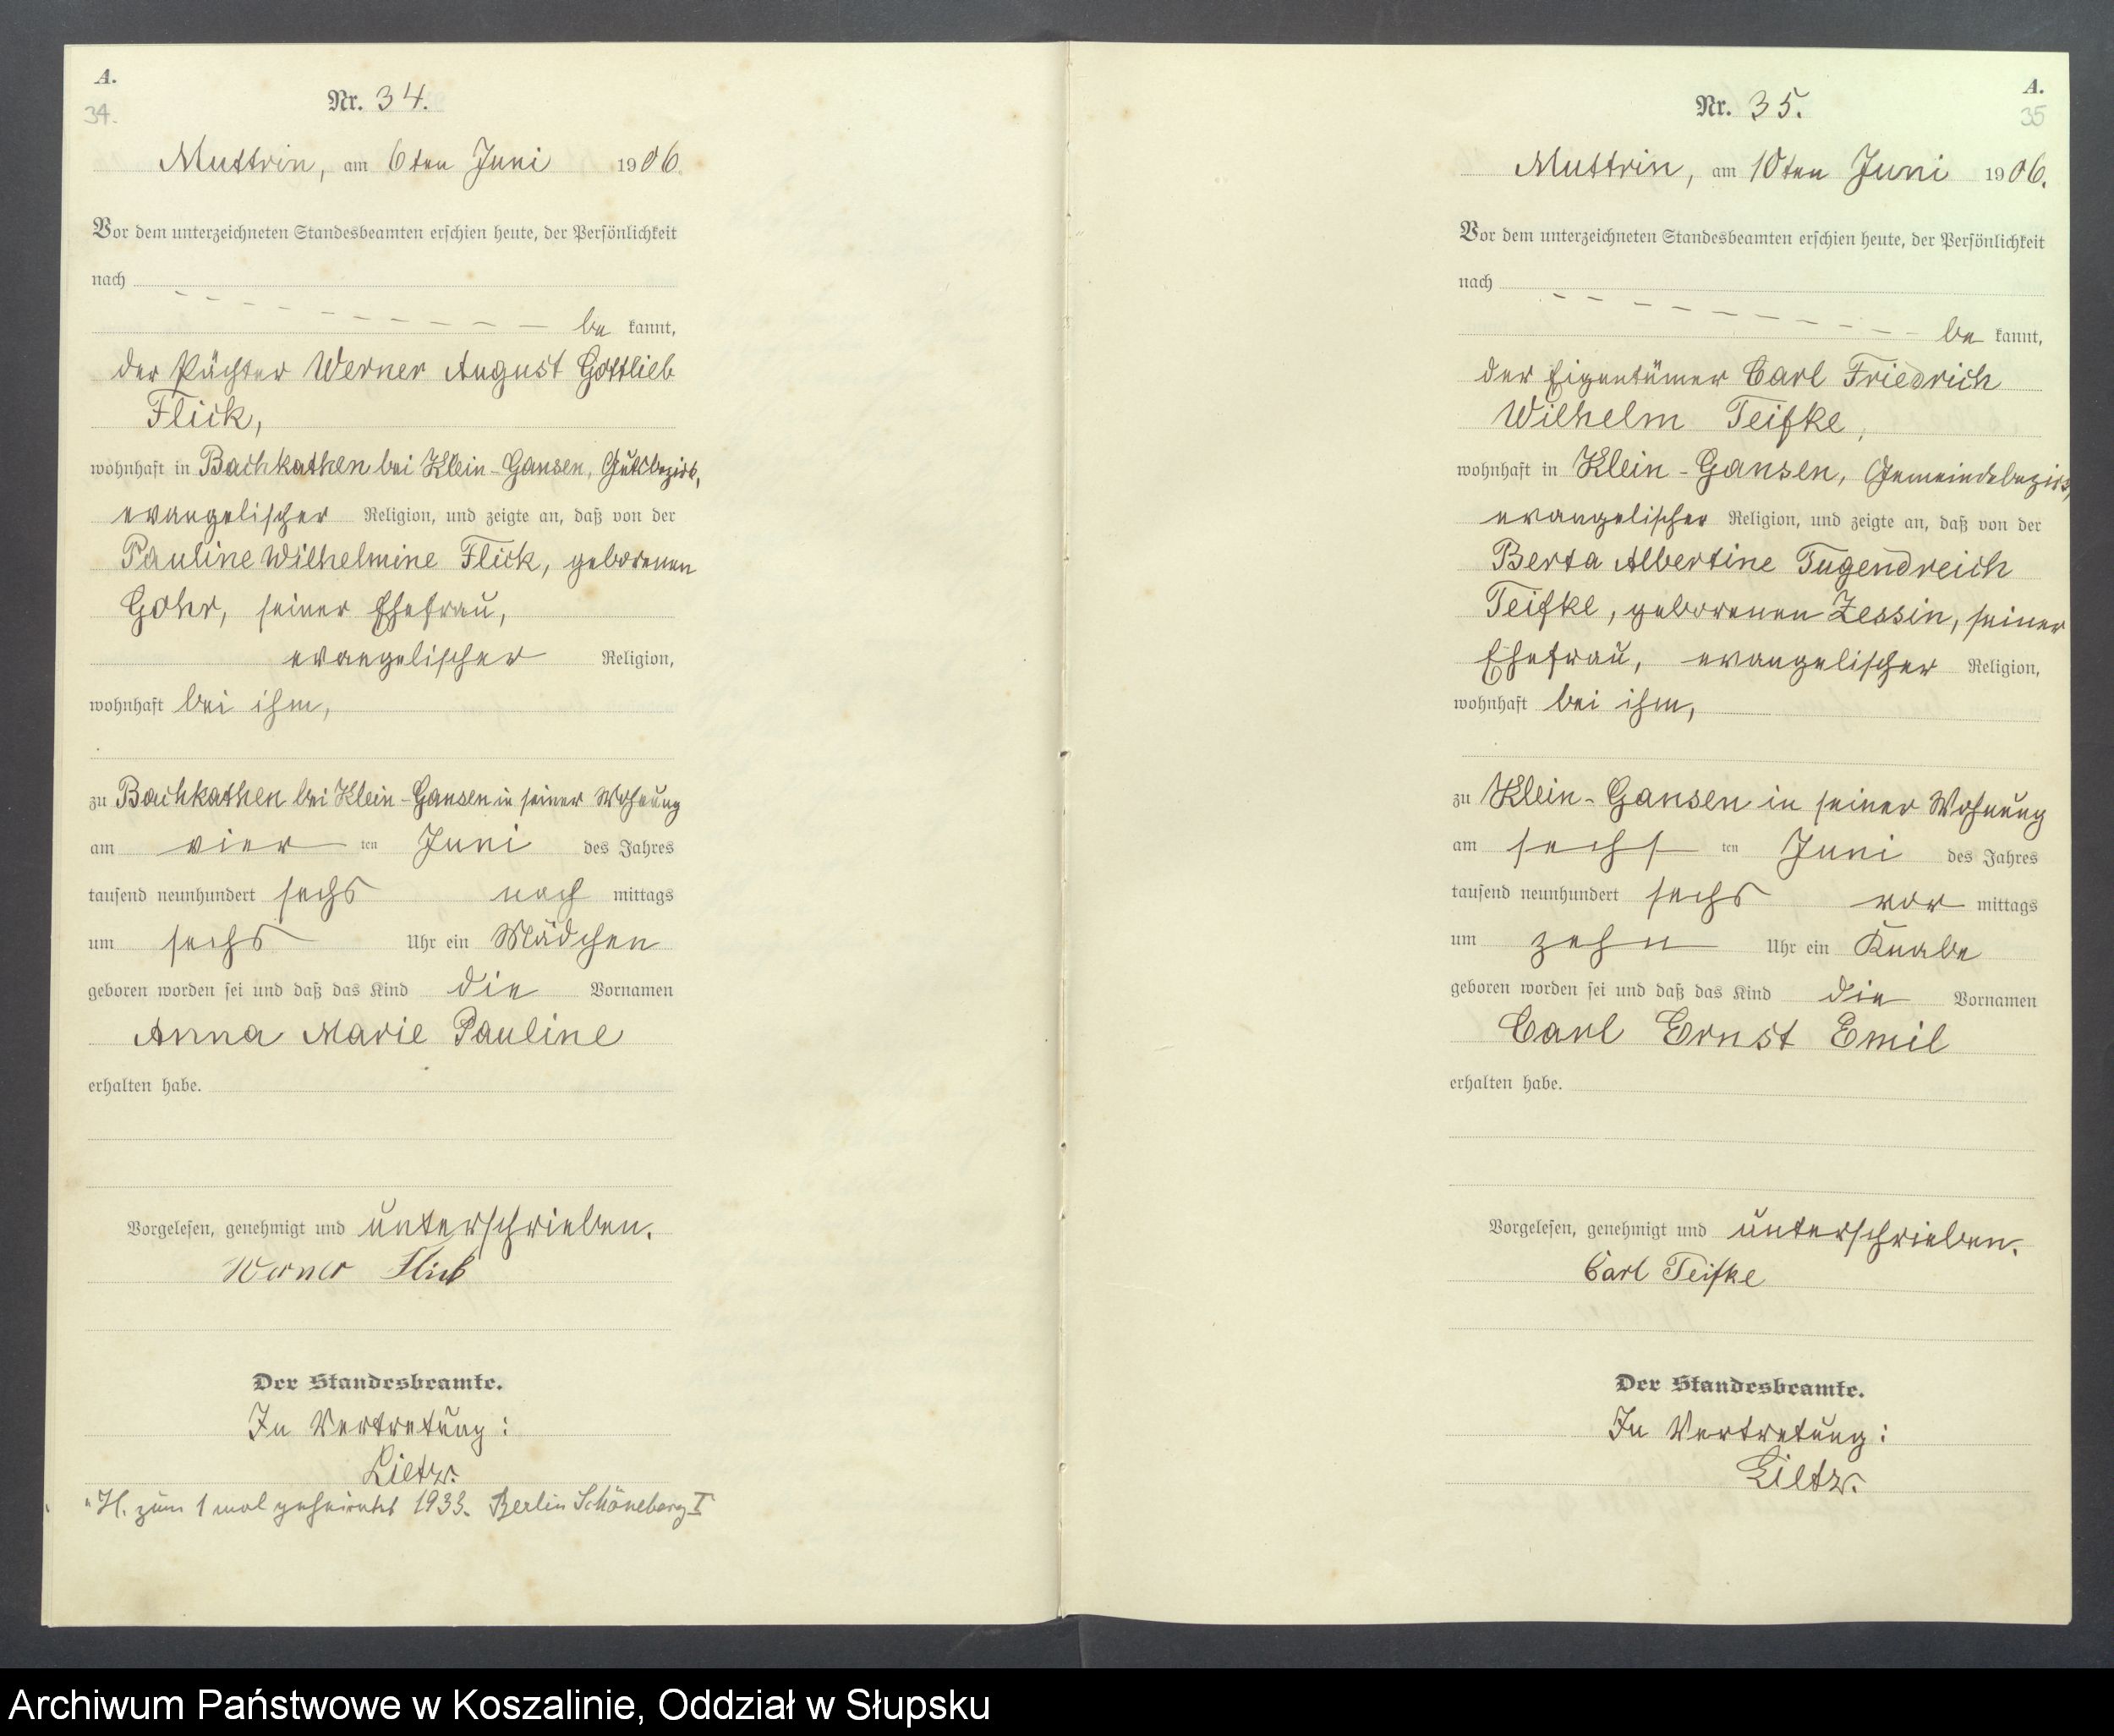 A.
34.
Nr. 34.
Muttrin, am 6ten Juni 1906.
Vor dem unterzeichneten Standesbeamten erschien heute, der Persönlichkeit
nach
be kannt,
der Pächter Werner August Gottlieb
Flick,
wohnhaft in Bachkathen bei Klein-Gansen, Gutsbezirk,
evangelischer Religion, und zeigte an, daß von der
Pauline Wilhelmine Flick, geborenen
Gohr, seiner Ehefrau,
evangelischer Religion,
wohnhaft bei ihm,
zu Bachkathen bei Klein-Gansen in seiner Wohnung
am vier ten Juni des Jahres
tausend neunhundert sechs nach mittags
um sechs Uhr ein Mädchen
geboren worden sei und daß das Kind die Vornamen
Anna Marie Pauline
erhalten habe.
Vorgelesen, genehmigt und unterschrieben.
Werner Flick
Der Standesbeamte.
In Vertretung:
Lietz.
H. zum 1 mal geheiratet 1933. Berlin Schöneberg I
A.
35
Nr. 35.
Muttrin, am 10ten Juni 1906.
Vor dem unterzeichneten Standesbeamten erschien heute, der Persönlichkeit
nach
be kannt,
der Eigentümer Carl Friedrich
Wilhelm Teifke,
wohnhaft in Klein-Gansen, Gemeindebezirk,
evangelischer Religion, und zeigte an, daß von der
Berta Albertine Tugendreich
Teifke, geborenen Zessin, seiner
Ehefrau, evangelischer Religion,
wohnhaft bei ihm,
zu Klein-Gansen in seiner Wohnung
am sechs ten Juni des Jahres
tausend neunhundert sechs vor mittags
um zehn Uhr ein Knabe
geboren worden sei und daß das Kind die Vornamen
Carl Ernst Emil
erhalten habe.
Vorgelesen, genehmigt und unterschrieben.
Carl Teifke
Der Standesbeamte.
In Vertretung:
Lietz.
Archiwum Państwowe w Koszalinie, Oddział w Słupsku